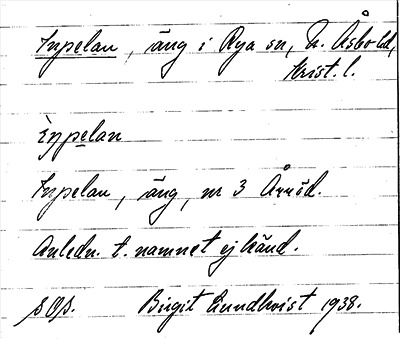 Inpelan, äng i Rya sn, N. Åsbo hd,
Krist. l.
Inpelan, äng, nr 3 Årröd.
Anledn. t. namnet ej känd.
SOS. Birgit Lundkvist 1938.